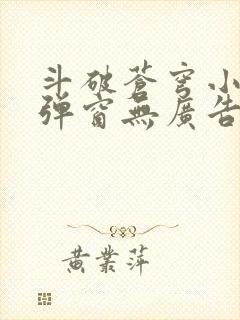 斗破蒼穹小
彈窗無廣告
黄業萍